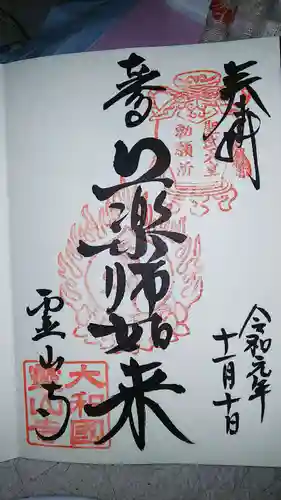 奉拝
令和元年
十一月十日
薬師如来
霊山寺
勅願所
大和國
霊山寺